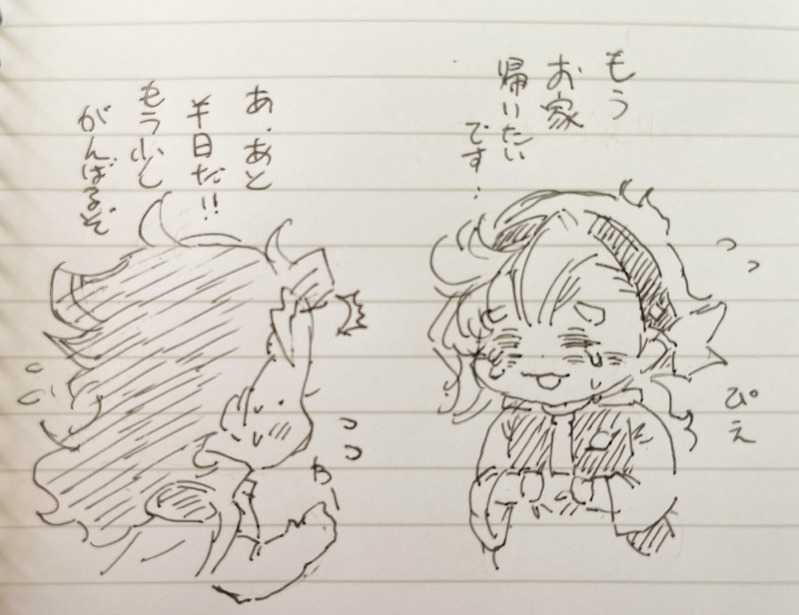 もう
お家
帰いたい
です…
ぴえ
あ、あと
半日だ!!
もう少し
がんばるぞ